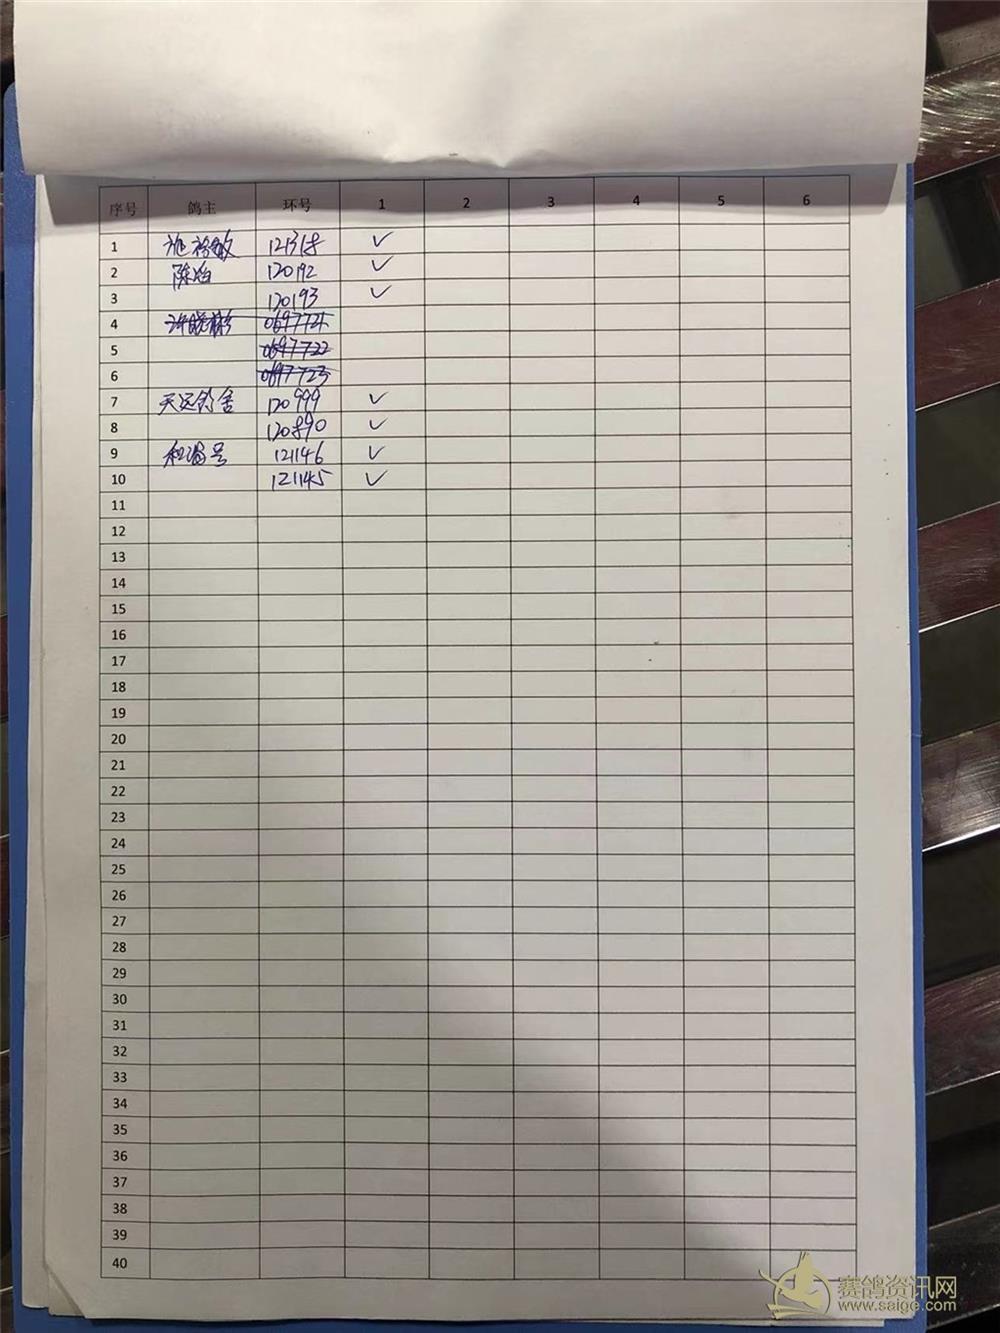 序号 鸽主 环号 1 2 3 4 5 6
1 121318 ✓
2 120192 ✓
3 120193 ✓
4 0697721
5 0697722
6 0697723
7 120999 ✓
8 120890 ✓
9 和谐号 121146 ✓
10 121145 ✓
11
12
13
14
15
16
17
18
19
20
21
22
23
24
25
26
27
28
29
30
31
32
33
34
35
36
37
38
39
40
赛鸽资讯网
www.saige.com